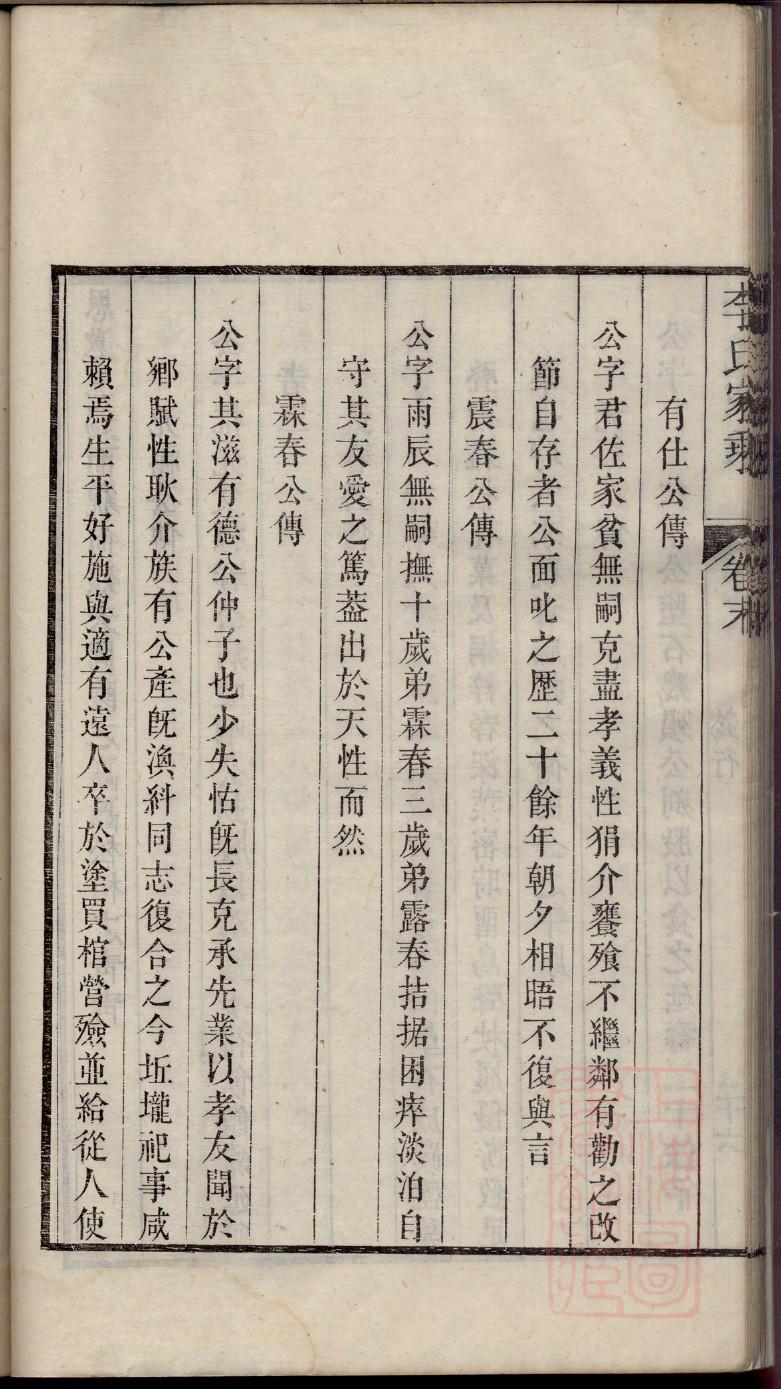 李氏家乘 卷末
有仕公傳
公字君佐家貧無嗣克盡孝義性狷介饔飱不繼鄰有勸之改
節自存者公面叱之歷二十餘年朝夕相晤不復與言
震春公傳
公字雨辰無嗣撫十歲弟霖春三歲弟露春拮据困瘁淡泊自
守其友愛之篤葢出於天性而然
霖春公傳
公字其滋有德公仲子也少失怙旣長克承先業以孝友聞於
鄉賦性耿介族有公產旣渙糾同志復合之今坵壠祀事咸
賴焉生平好施與適有遠人卒於塗買棺營殮並給從人使